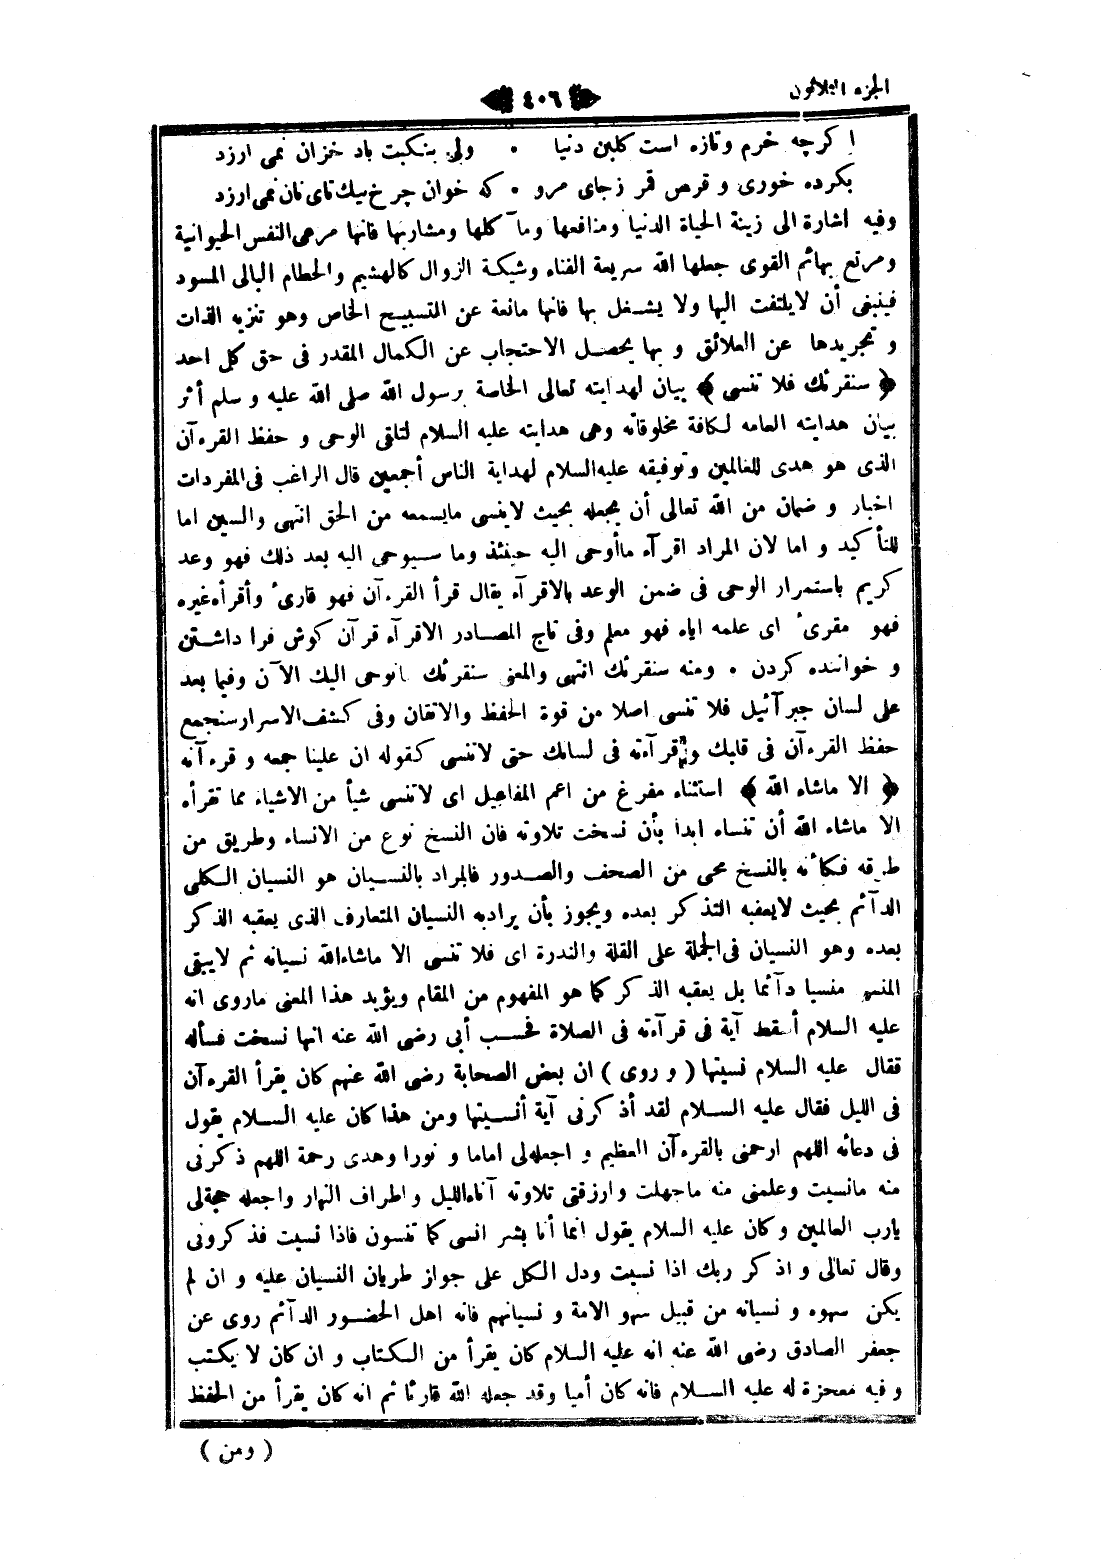 الجزء الثلاثون
٤٠٦
اكرچه خرم وتازه است كلبن دنيا • ولى بنكبت باد خزان نمى ارزد
بكرده خورى و قرص قمر زجاى مرو • كه خوان چرخ بيك تاى نان نمى ارزد
وفيه اشارة الى زينة الحياة الدنيا ومنافعها ومآ كلها ومشاربها فانها مرعى النفس الحيوانية
ومرتع بهائم القوى جعلها الله سريعة الفناء وشيكة الزوال كالهشيم والحطام البالى المسود
فينبغى أن لايلتفت اليها ولا يشغل بها فانها مانعة عن التسبيح الخاص وهو تنزيه الذات
و تجريدها عن العلائق و بها يحصل الاحتجاب عن الكمال المقدر فى حق كل احد
﴿ سنقرئك فلا تنسى ﴾ بيان لهدايته تعالى الخاصة برسول الله صلى الله عليه و سلم أثر
بيان هدايته العامه لكافة مخلوقاته وهى هدايته عليه السلام لتلقى الوحى و حفظ القرءآن
الذى هو هدى للعالمين وتوفيقه عليه السلام لهداية الناس أجمعين قال الراغب فى المفردات
اخبار و ضمان من الله تعالى أن يجعله بحيث لاينسى مايسمعه من الحق انتهى والسين اما
للتأكيد و اما لان المراد اقرآء ماأوحى اليه حينئذ وما سيوحى اليه بعد ذلك فهو وعد
كريم باستمرار الوحى فى ضمن الوعد بالاقرآء يقال قرأ القرءآن فهو قارئ وأقرأه غيره
فهو مقرئ اى علمه اياه فهو معلم وفى تاج المصادر الاقرآء قرآن كوش فرا داشتن
و خواننده كردن • ومنه سنقرئك انتهى والمعنى سنقرئك مانوحى اليك الآن وفيما بعد
على لسان جبرآئيل فلا تنسى اصلا من قوة الحفظ والاتقان وفى كشف الاسرار سنجمع
حفظ القرءآن فى قلبك وقرآءته فى لسانك حتى لاتنسى كقوله ان علينا جمعه و قرءآنه
﴿ الا ماشاء الله ﴾ استثناء مفرغ من اعم المفاعيل اى لاتنسى شيأ من الاشياء مما تقرأه
الا ماشاء الله أن تنساه ابدا بأن نسخت تلاوته فان النسخ نوع من الانساء وطريق من
طرقه فكأنه بالنسخ محى من الصحف والصدور فالمراد بالنسيان هو النسيان الكلى
الدآئم بحيث لايعقبه التذكر بعده ويجوز بأن يرادبه النسيان المتعارف الذى يعقبه الذكر
بعده وهو النسيان فى الجملة على القلة والندرة اى فلا تنسى الا ماشاءالله نسيانه ثم لايبقى
المنسى منسيا دآئما بل يعقبه الذكر كما هو المفهوم من المقام ويؤيد هذا المعنى ماروى انه
عليه السلام أسقط آية فى قرآءته فى الصلاة فحسب أبى رضى الله عنه انها نسخت فسأله
فقال عليه السلام نسيتها ( و روى ) ان بعض الصحابة رضى الله عنهم كان يقرأ القرءآن
فى الليل فقال عليه السلام لقد أذكرنى آية أنسيتها ومن هذا كان عليه السلام يقول
فى دعائه اللهم ارحمنى بالقرءآن العظيم و اجعله لى اماما و نورا وهدى رحمة اللهم ذكرنى
منه مانسيت وعلمنى منه ماجهلت وارزقنى تلاوته آناءالليل و اطراف النهار واجعله حجة لى
يارب العالمين وكان عليه السلام يقول انما أنا بشر انسى كما تنسون فاذا نسيت فذكرونى
وقال تعالى و اذكر ربك اذا نسيت ودل الكل على جواز طريان النسيان عليه و ان لم
يكن سهوه و نسيانه من قبيل سهو الامة و نسيانهم فانه اهل الحضور الدآئم روى عن
جعفر الصادق رضى الله عنه انه عليه السلام كان يقرأ من الكتاب و ان كان لا يكتب
و فيه معجزة له عليه السلام فانه كان أميا وقد جعله الله قارئا ثم انه كان يقرأ من الحفظ
( ومن )